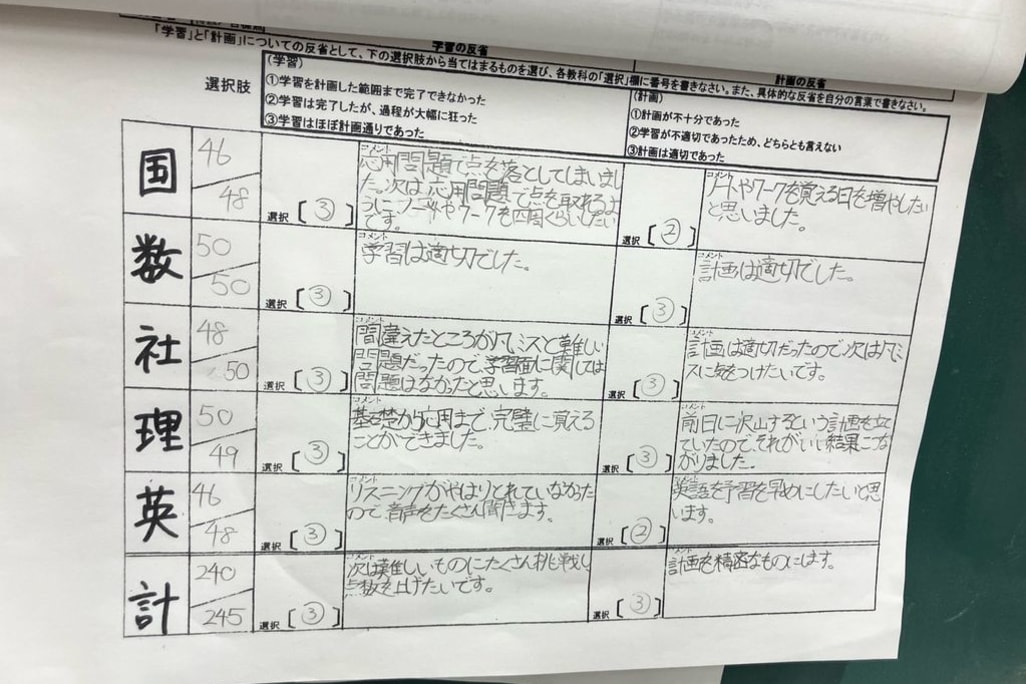 学習の反省
計画の反省
「学習」と「計画」についての反省として、下の選択肢から当てはまるものを選び、各教科の「選択」欄に番号を書きなさい。また、具体的な反省を自分の言葉で書きなさい。
選択肢
(学習)
①学習を計画した範囲まで完了できなかった
②学習は完了したが、過程が大幅に狂った
③学習はほぼ計画通りであった
(計画)
①計画が不十分であった
②学習が不適切であったため、どちらとも言えない
③計画は適切であった
国
46
48
選択〔③〕
コメント
応用問題で点を落としてしまいまし
た。次は、応用問題で点を取れるよ
うに、ノートやワークを四周ぐらいしたい
です。
選択〔②〕
コメント
ノートやワークを覚える日を増やしたい
と思いました。
数
50
50
選択〔③〕
コメント
学習は適切でした。
選択〔③〕
コメント
計画は適切でした。
社
48
50
選択〔③〕
コメント
間違えたところが凡ミスと難しい
問題だったので、学習面に関しては
問題はなかったと思います。
選択〔③〕
コメント
計画は適切だったので次は凡ミ
スに気をつけたいです。
理
50
49
選択〔③〕
コメント
基礎から応用まで、完璧に覚える
ことができました。
選択〔③〕
コメント
前日に沢山するという計画を立て
ていたので、それがいい結果につな
がりました。
英
46
48
選択〔③〕
コメント
リスニングがやはりとれていなかった
ので、音声をたくさん聞きます。
選択〔②〕
コメント
英語を予習を早めにしたいと思
います。
計
240
245
選択〔③〕
コメント
次は難しいものにたくさん挑戦し
点数を上げたいです。
選択〔③〕
コメント
計画を精密なものにします。